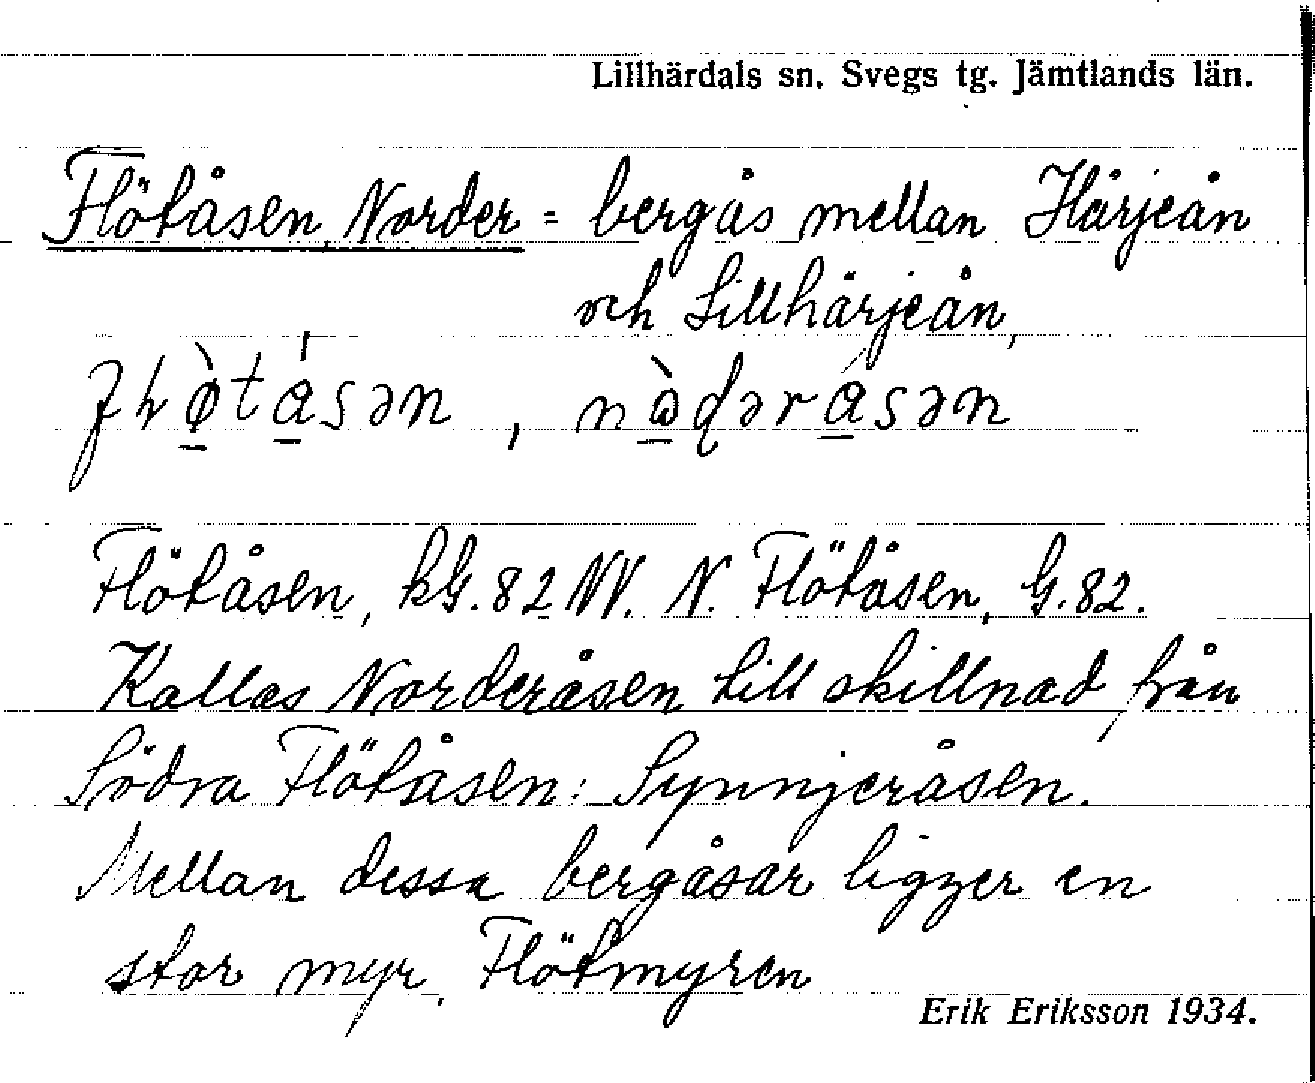 Lillhärdals sn. Svegs tg. Jämtlands län.
Flötåsen, Norder = bergås mellan Härjeån
och Lillhärjeån,
Flötåsen, kG. 82 NV. N. Flötåsen, G. 82.
Kallas Norderåsen till skillnad från
Södra Flötåsen: Synnjeråsen.
Mellan dessa bergåsar ligger en
stor myr, Flötmyren
Erik Eriksson 1934.